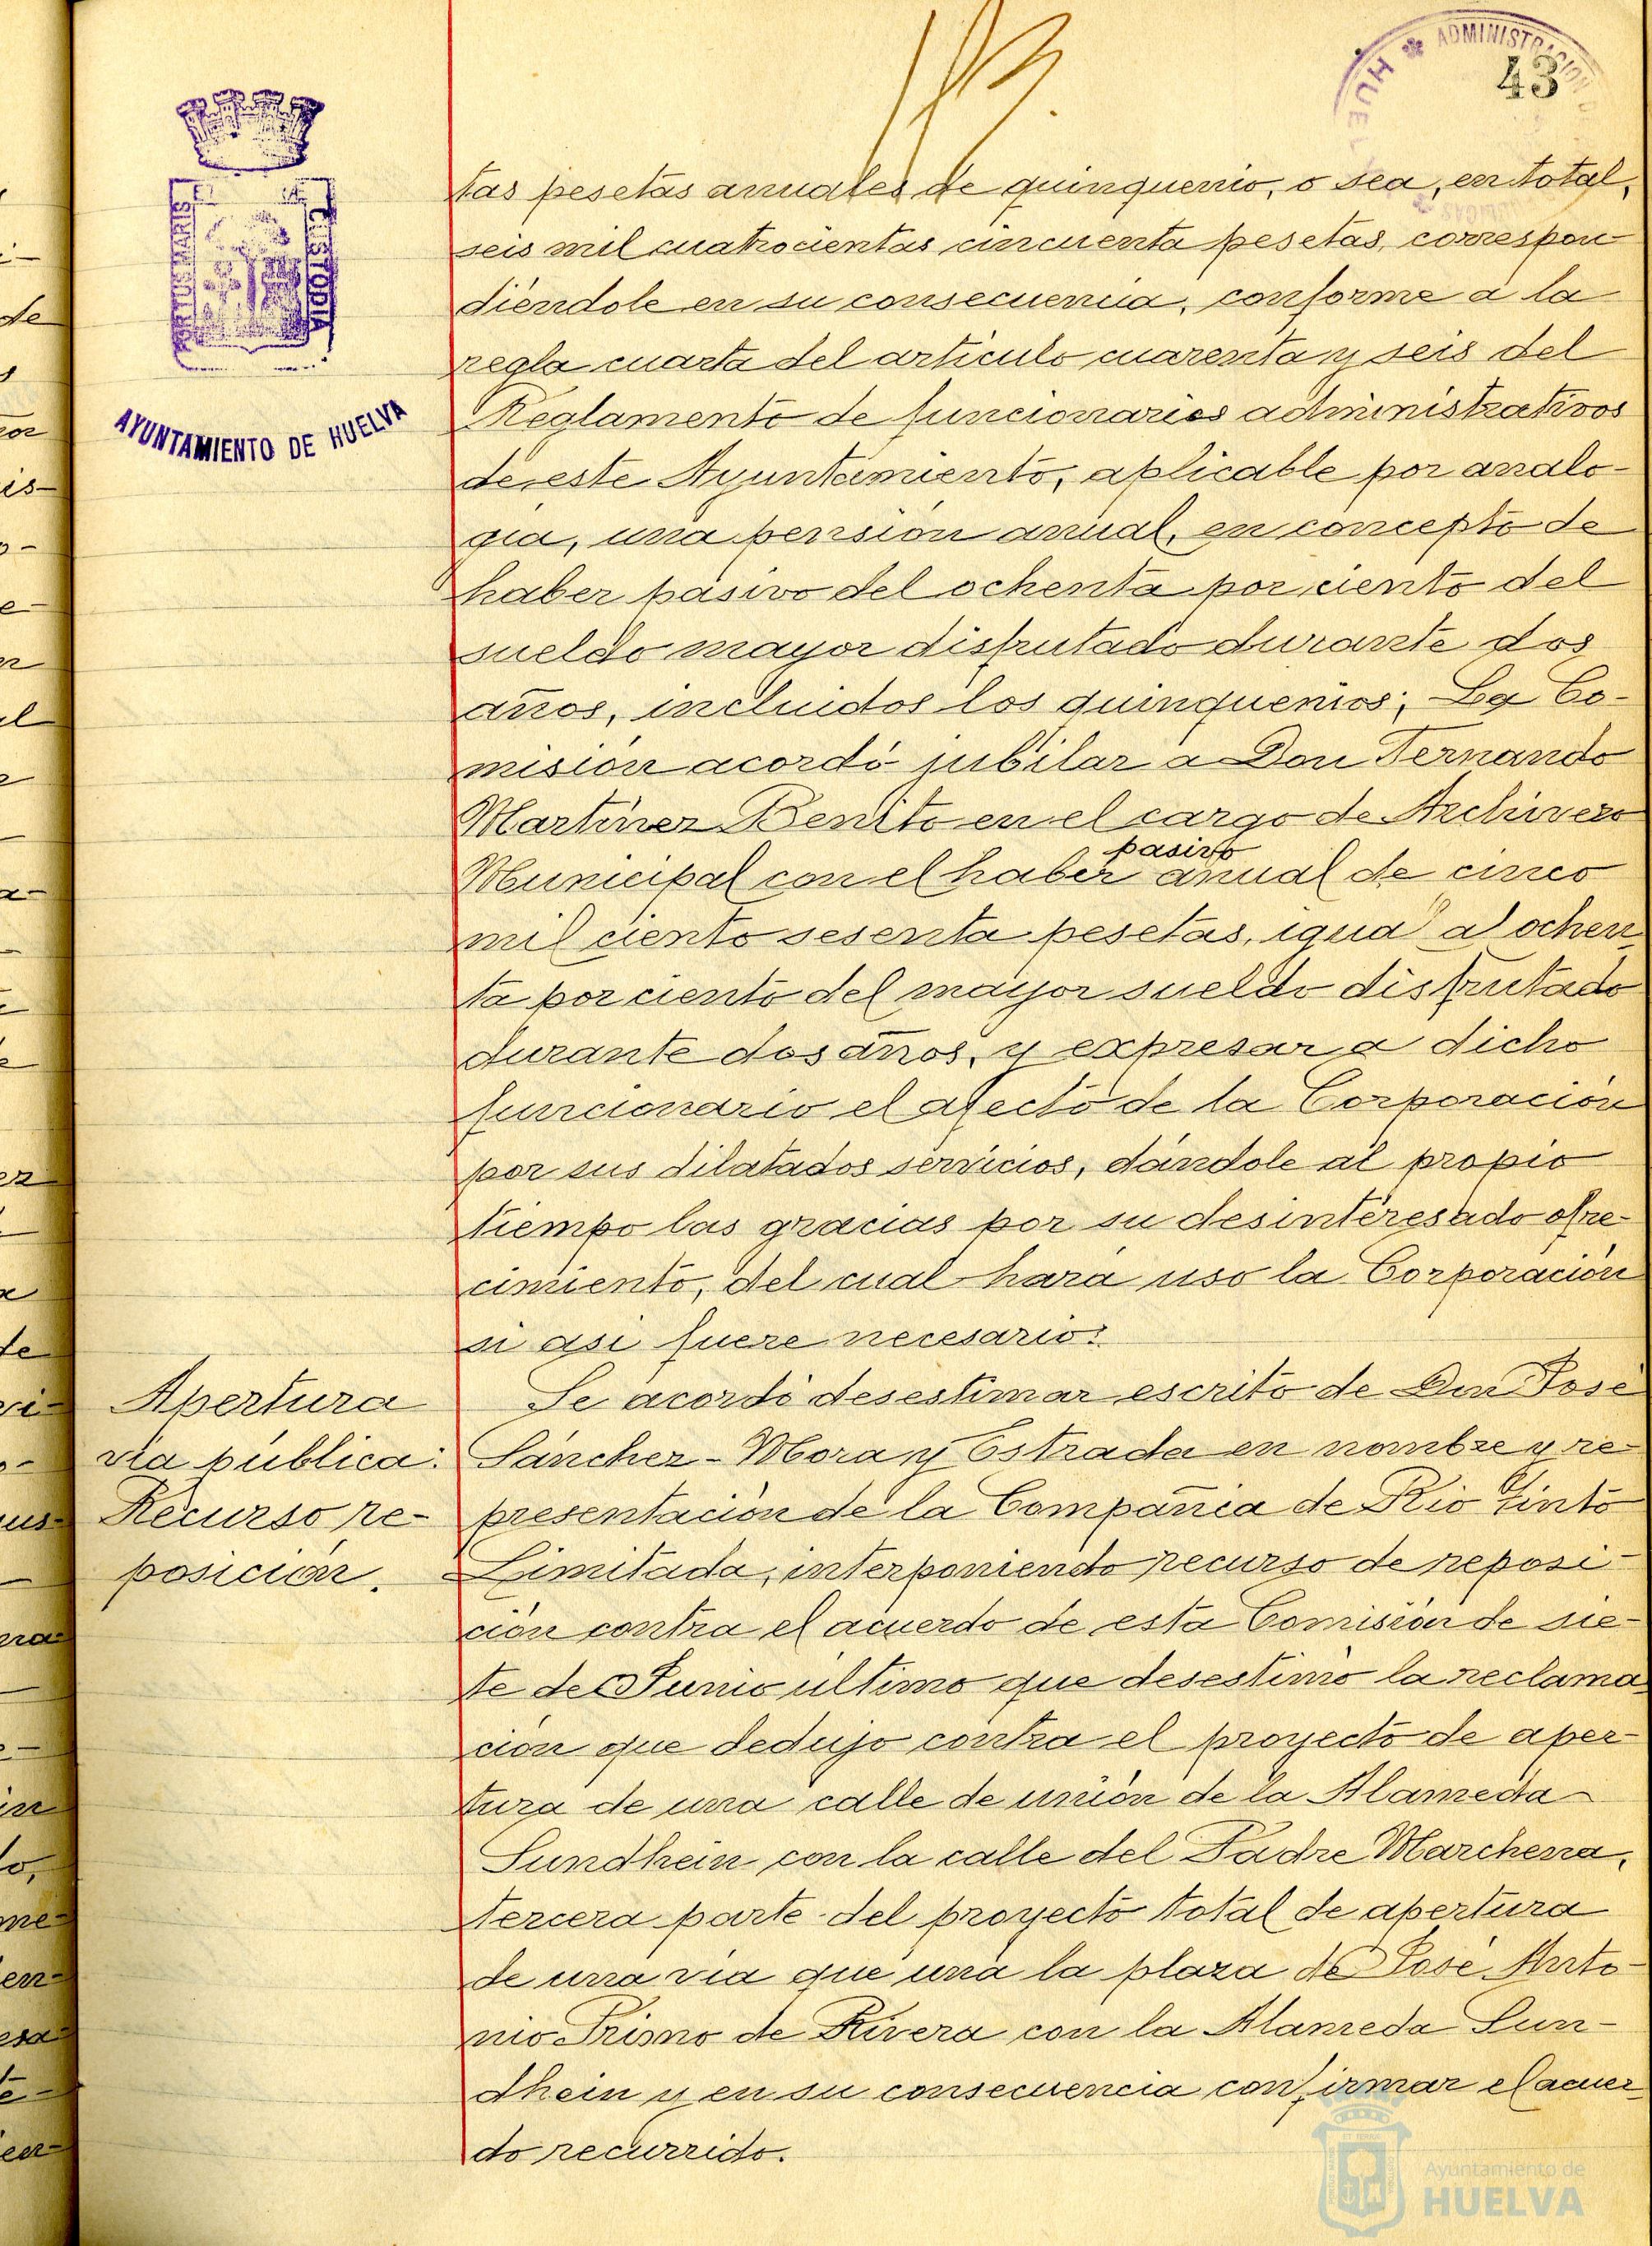 ADMINISTRACION
HUEL
43
PORTUS MARIS
CUSTODIA
AYUNTAMIENTO DE HUELVA
tas pesetas anuales de quinquenio, o sea, en total,
seis mil cuatrocientas cincuenta pesetas, correspon
diéndole en su consecuencia, conforme a la
regla cuarta del artículo cuarenta y seis del
Reglamento de funcionarios administrativos
de este Ayuntamiento, aplicable por analo-
gía, una pensión anual, en concepto de
haber pasivo del ochenta por ciento del
sueldo mayor disfrutado durante dos
años, incluidos los quinquenios; La Co-
misión acordó jubilar a Don Fernando
Martínez Benito en el cargo de Archivero
pasivo
Municipal con el haber anual de cinco
mil ciento sesenta pesetas, igual al ochen
ta por ciento del mayor sueldo disfrutado
durante dos años, y expresar a dicho
funcionario el afecto de la Corporación
por sus dilatados servicios, dándole al propio
tiempo las gracias por su desinteresado ofre-
cimiento, del cual hará uso la Corporación
si así fuere necesario.
Apertura
vía pública:
Recurso re-
posición.
Se acordó desestimar escrito de Don José
Sánchez-Mora y Estrada en nombre y re-
presentación de la Compañía de Rio Tinto
Limitada, interponiendo recurso de reposi-
ción contra el acuerdo de esta Comisión de sie-
te de Junio último que desestimó la reclama
ción que dedujo contra el proyecto de aper-
tura de una calle de unión de la Alameda
Sundhein con la calle del Padre Marchena,
tercera parte del proyecto total de apertura
de una vía que una la plaza de José Anto-
nio Primo de Rivera con la Alameda Sun-
dhein y en su consecuencia confirmar el acuer
do recurrido.
Ayuntamiento de
HUELVA